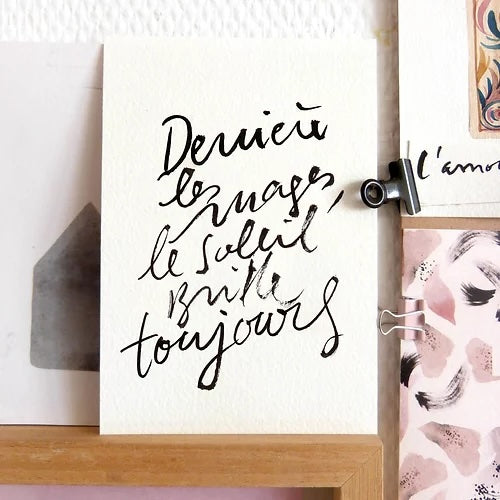 Derrière
les nuages,
le soleil
Brille
toujours
L'amou